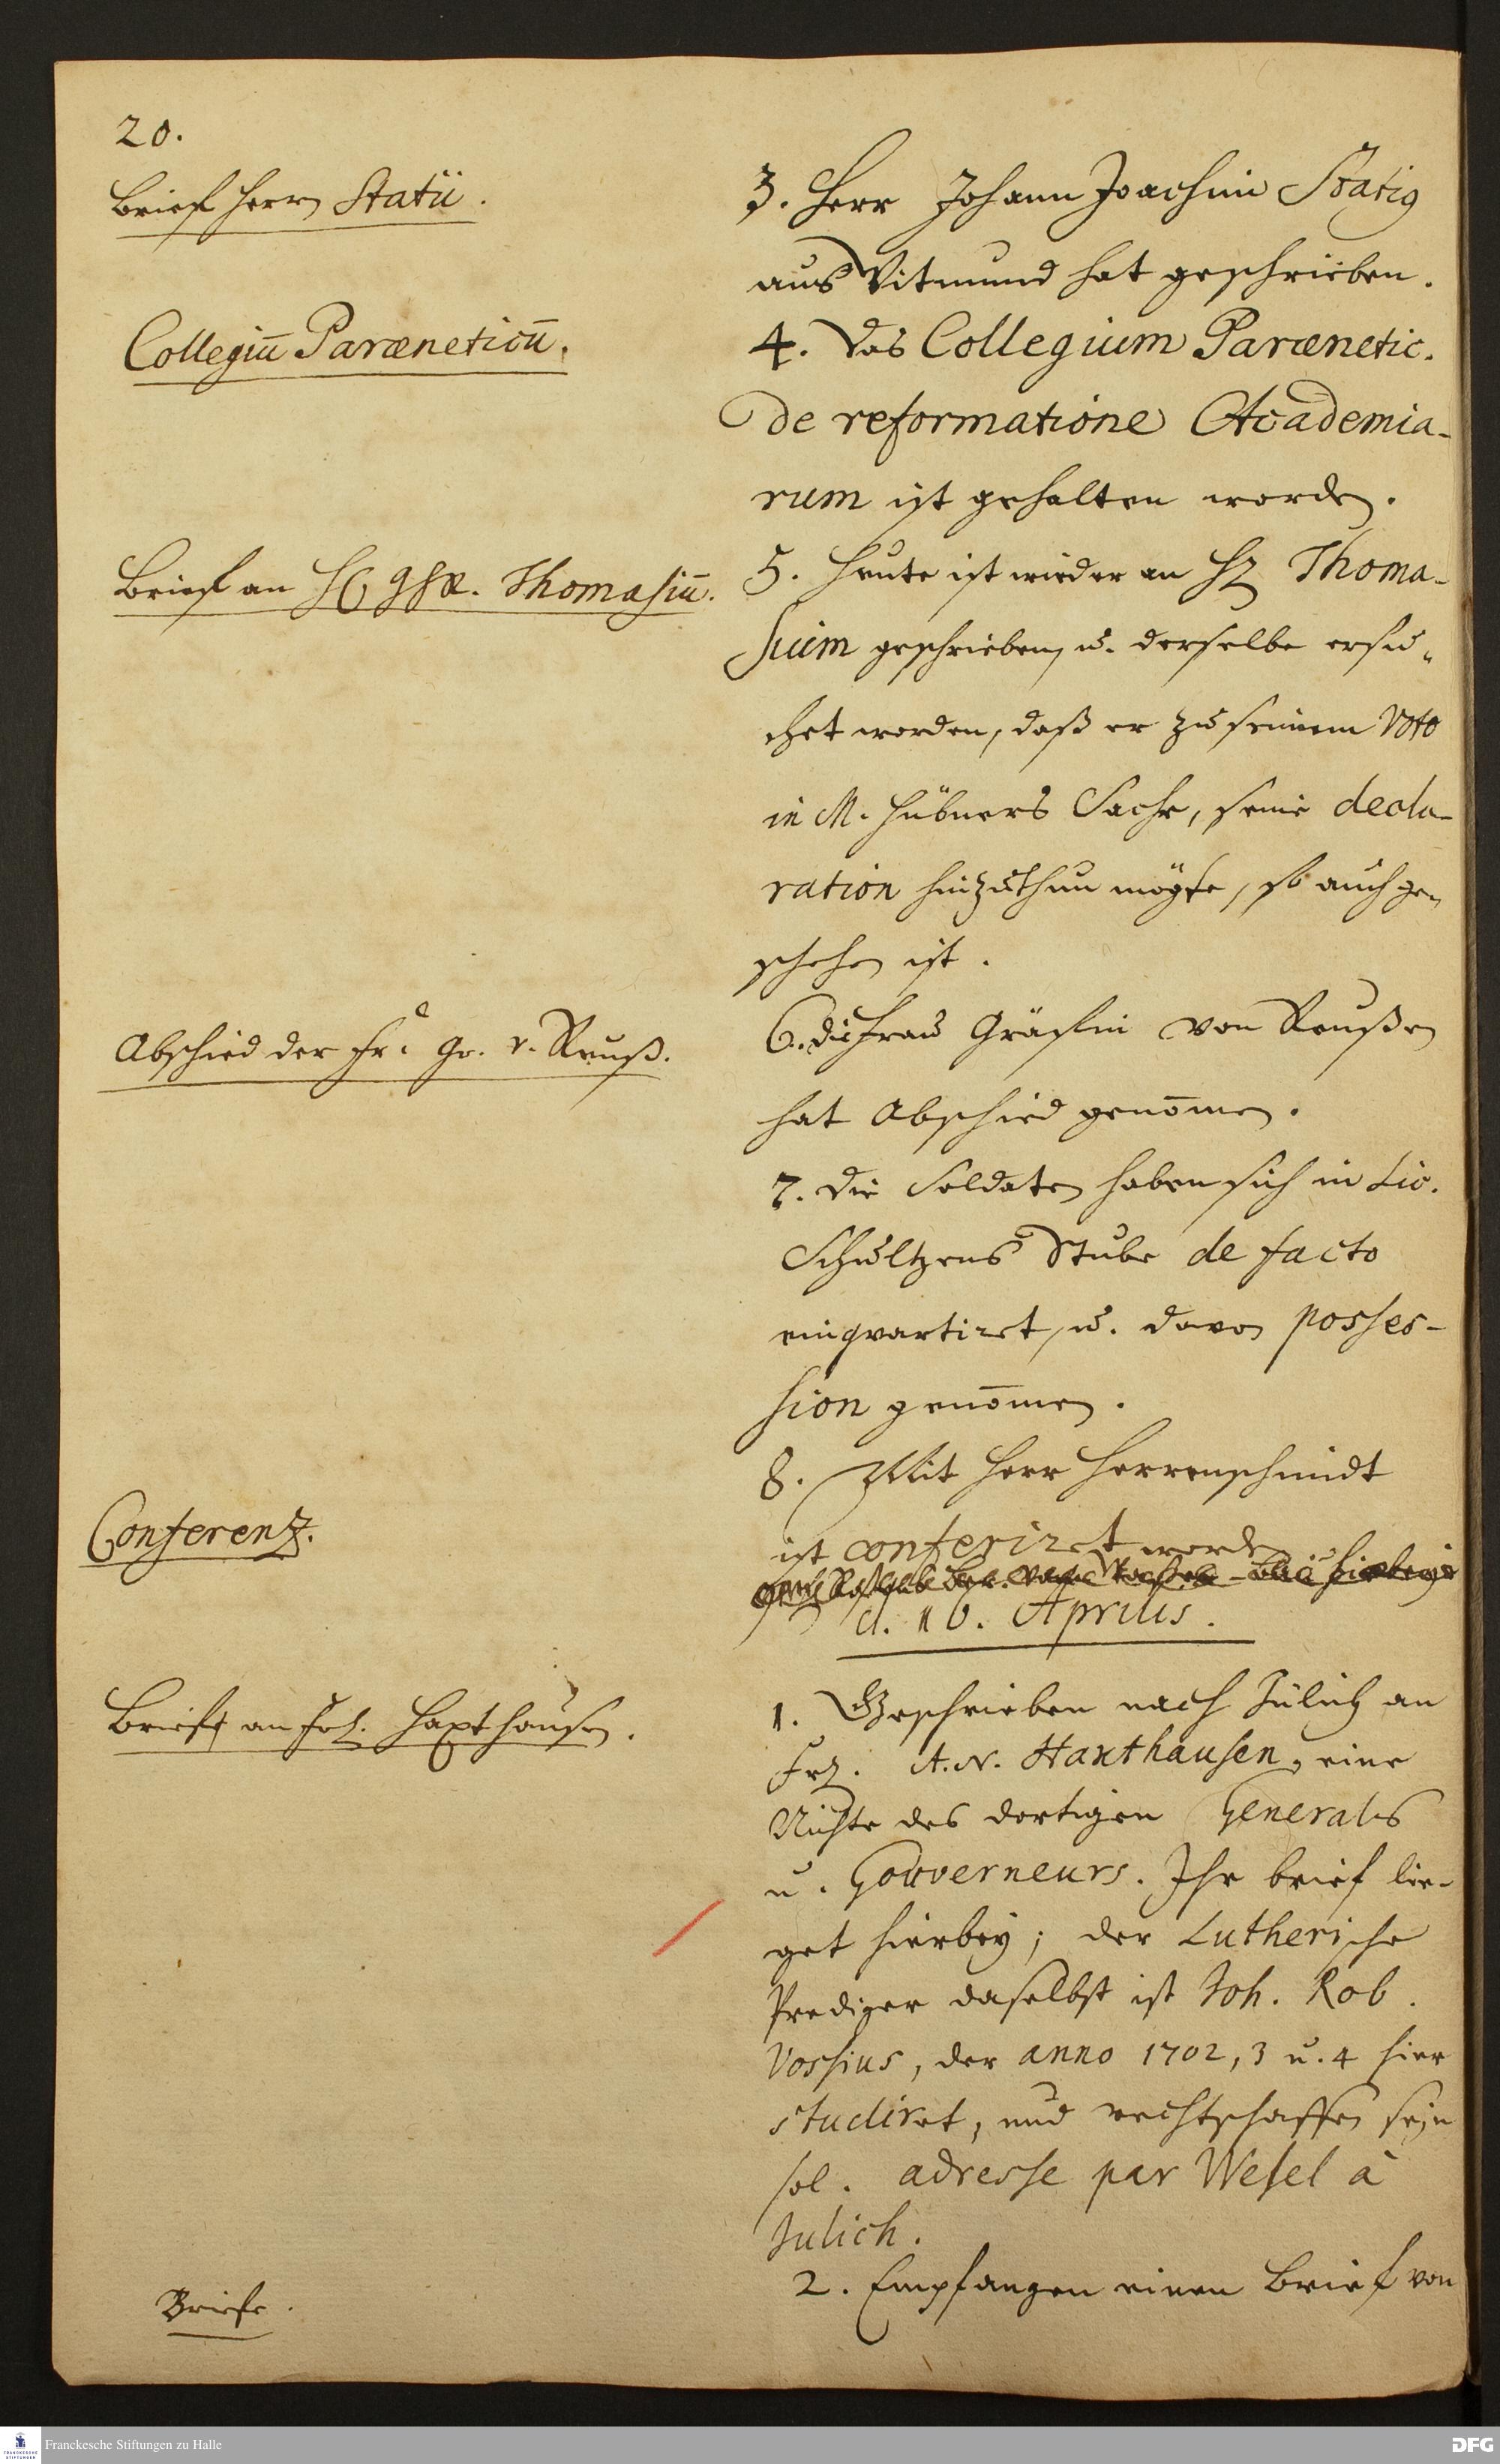 20.
Brief Herrn Statii.
3. Herr Johann Joachim Statig
aus Vitmund hat geschrieben.
Collegiū Paræneticū.
4. Das Collegium Parænetic.
de reformatione Academia-
rum ist gehalten worden.
Brief an H. Thomasiū.
5. Heute ist wieder an H Thoma-
sium geschrieben, u. derselbe ersu-
chet worden, daß er zu seinem Voto
in M. Hübners Sache, seine decla-
ration hinzuthun mögte, so auch ge-
schehen ist.
Abschied der Fr. Gr. v. Reuß.
6. die Frau Gräffin von Reußen
hat Abschied genom̄en.
7. Die Soldaten haben sich in Lic.
Schultzens Stube de facto
einqvartiret, u. davon posses-
sion genom̄en.
Conferenz.
8. Mit Herr Herrnschmidt
ist conferiret worden
d. 16. Aprilis.
Brieff an Frl. Haxthausen.
1. Geschrieben nach Jülich an
Frl. A. N. Haxthausen, eine
Nichte des dortigen Generals
u. Gouverneurs. Ihr brief lie-
get hierbey; der Lutherische
Prediger daselbst ist Joh. Rob.
Vossius, der anno 1702, 3 u. 4 hier
studiret, und rechtschaffen seyn
sol. adresse par Wesel à
Julich.
Briefe.
2. Empfangen einen Brief von
Franckesche Stiftungen zu Halle
DFG